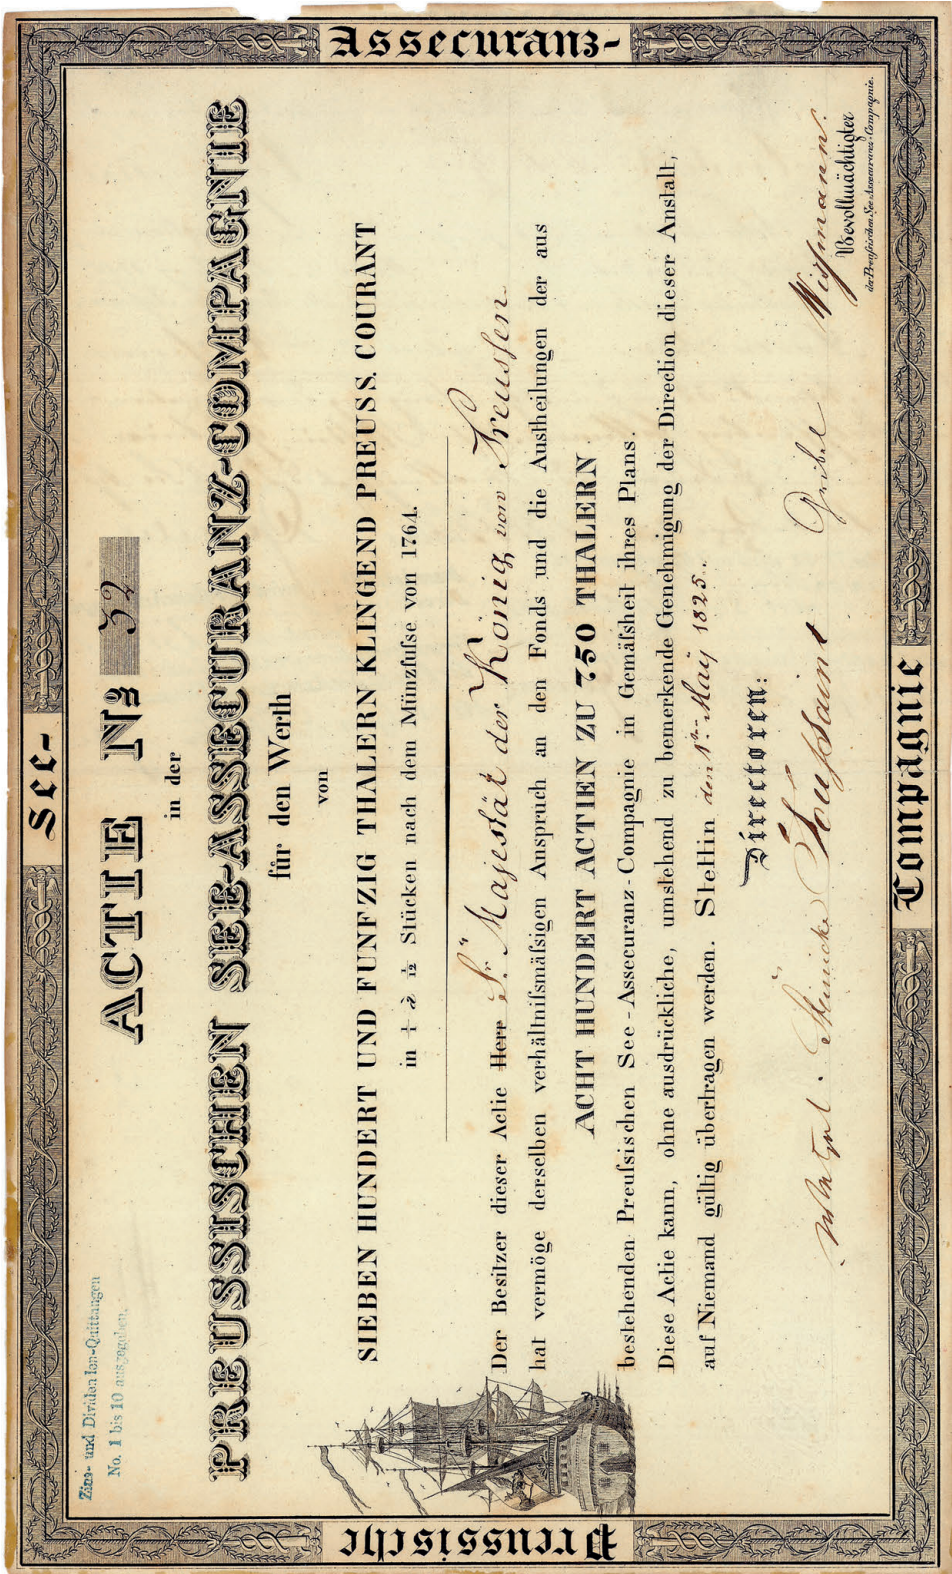 Preussische
See-
Assecuranz-
Compagnie
Zins- und Dividenden-Quittungen
No. 1 bis 10 ausgegeben.
ACTIE No 32
in der
PREUSSISCHEN SEE-ASSECURANZ-COMPAGNIE
für den Werth
von
SIEBEN HUNDERT UND FUNFZIG THALERN KLINGEND PREUSS. COURANT
in Stücken nach dem Münzfuſse von 1764.
Der Besitzer dieser Actie Herr Sr. Majestät der König von Preussen
hat vermöge derselben verhältniſsmäſsigen Anspruch an den Fonds und die Austheilungen der aus
ACHT HUNDERT ACTIEN ZU 750 THALERN
bestehenden Preuſsischen See-Assecuranz-Compagnie in Gemäſsheit ihres Plans.
Diese Actie kann, ohne ausdrückliche, umstehend zu bemerkende Genehmigung der Direction dieser Anstalt,
auf Niemand gültig übertragen werden. Stettin den 1ten Maij 1825.
Directoren:
Toussaint Gribel Wiſsmann.
Bevollmächtigter
der Preuſsischen See-Assecuranz-Compagnie.